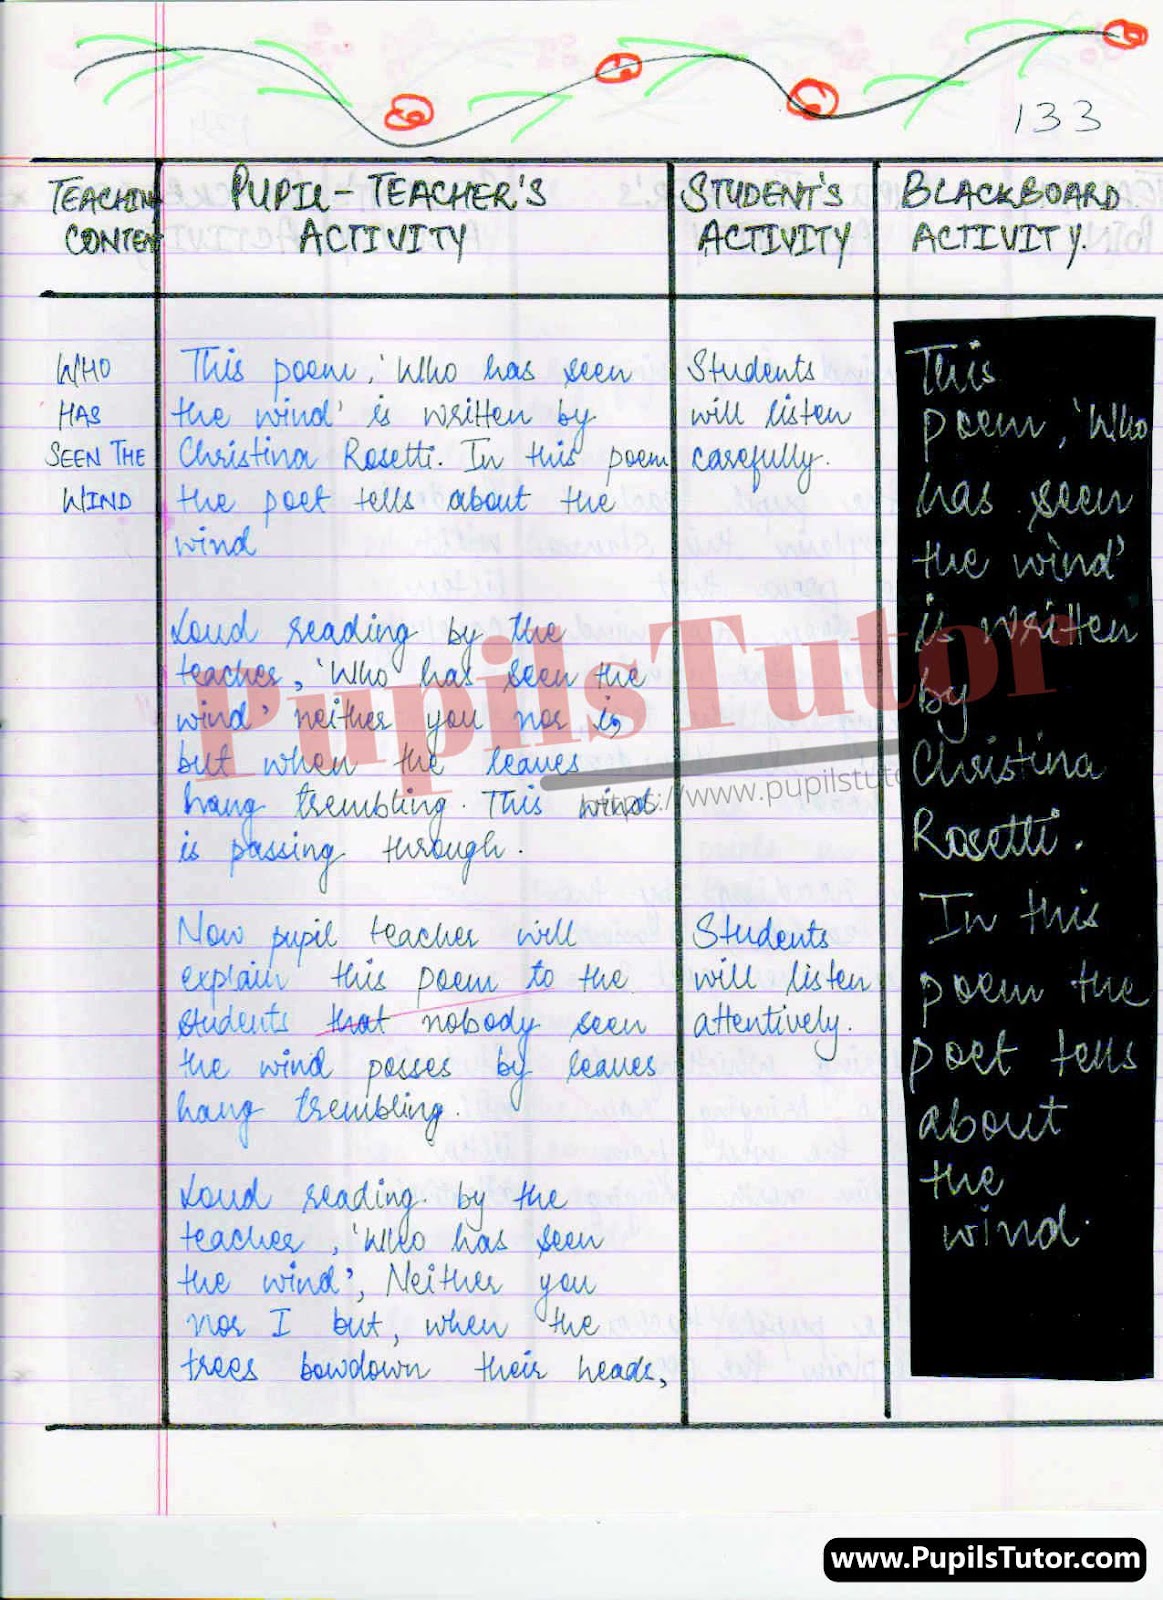 133
TEACHING
CONTENT
PUPIL-TEACHER'S
ACTIVITY
STUDENT'S
ACTIVITY
BLACKBOARD
ACTIVITY.
WHO
HAS
SEEN THE
WIND
This poem, 'Who has seen
the wind' is written by
Christina Rosetti. In this poem
the poet tells about the
wind
Loud reading by the
teacher, 'Who has seen the
wind' neither you nor i,
but when the leaves
hang trembling. This wind
is passing through.
Now pupil teacher will
explain this poem to the
students that nobody seen
the wind posses by leaves
hang trembling.
Loud reading by the
teacher, 'Who has seen
the wind', Neither you
nor I but, when the
trees bowdown their heads,
Students
will listen
carefully.
Students
will listen
attentively.
This
poem, 'Who
has seen
the wind'
is written
by
Christina
Rosetti.
In this
poem the
poet tells
about
the
wind.
PupilsTutor
https://www.pupilstuto
www.PupilsTutor.com